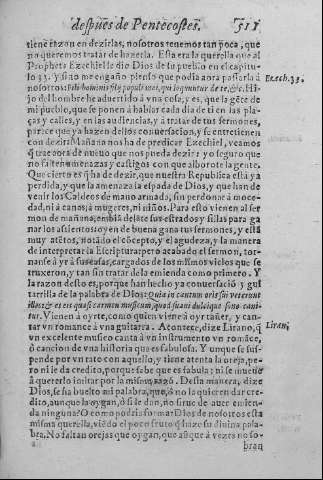 despues de Pentecostes. 511
tiene razon en dezirlas, nosotros tenemos tan poca, que
no queremos tratar de hazerla. Esta era la querella que al
Propheta Ezechiel le dio Dios de su pueblo en el capitu-
lo 33. Y si no me engaño pienso que podia aora passarla à
Ezech. 33.
nosotros: Fili hominis filij populi tui, qui loquuntur de te, &c. Hi-
jo del hombre he aduertido à vna cosa, y es, que la gẽte de
mi pueblo, que se ponen à hablar cada dia de ti en las pla-
ças y calles, y en las audiencias, y à tratar de tus sermones,
parece que ya hazen dellos conuersacion, y se entretienen
con dezir: Mañana nos ha de predicar Ezechiel, veamos
q̃ trae aora de nueuo que nos pueda dezir: yo seguro que
no falten menazas y castigos con que alborote la gente.
Que cierto es q̃ ha de dezir, que nuestra Republica està ya
perdida, y que la amenaza la espada de Dios, y que han de
venir los Caldeos de mano armada, sin perdonar à moce-
dad, ni à canas, à mugeres, ni niños. Para esto vienen al ser
mon de mañana, embiã delãte sus estrados y sillas para ga
nar los assientos: oyen de buena gana tus sermones, y està
muy atẽtos, notãdo el cõcepto, y el agudeza, y la manera
de interpretar la Escriptura: pero acabado el sermon, tor-
nanse à yr à sus casas, cargados de los mismos vicios que se
truxeron, y tan sin tratar de la emienda como primero. Y
la razon desto es, porque han hecho ya conuersació y gui
tarrilla de la palabra de Dios: Quia in cantum oris sui vertunt
illos: & es eis quasi carmen musicum, quod suaui dulcique sono cani-
tur. Vienen à oyrte, como quien viene à oyr tañer, y can-
tar vn romance à vna guitarra. Acontece, dize Lirano, q̃
Liran.
vn excelente musico canta à vn instrumento vn romãce,
ò cancion de vna historia que es fabulosa. Y aunque se sus-
pende por vn rato con aquello, y tiene atenta la oreja, pe-
ro ni le da credito, porque sabe que es fabula; ni se mueue
à quererlo imitar por la mismo razõ. Desta manera, dize
Dios, se ha buelto mi palabra, que, ò no lo quieren dar cre-
dito, aunque la oygan, ò si le dan, no sirue de auer emien-
da ninguna? O como podria formar Dios de nosotros esta
misma querella, viẽdo el poco fruto q̃ haze su diuina pala-
bra. No faltan orejas que oygan, que aũque à vezes no so-
bran